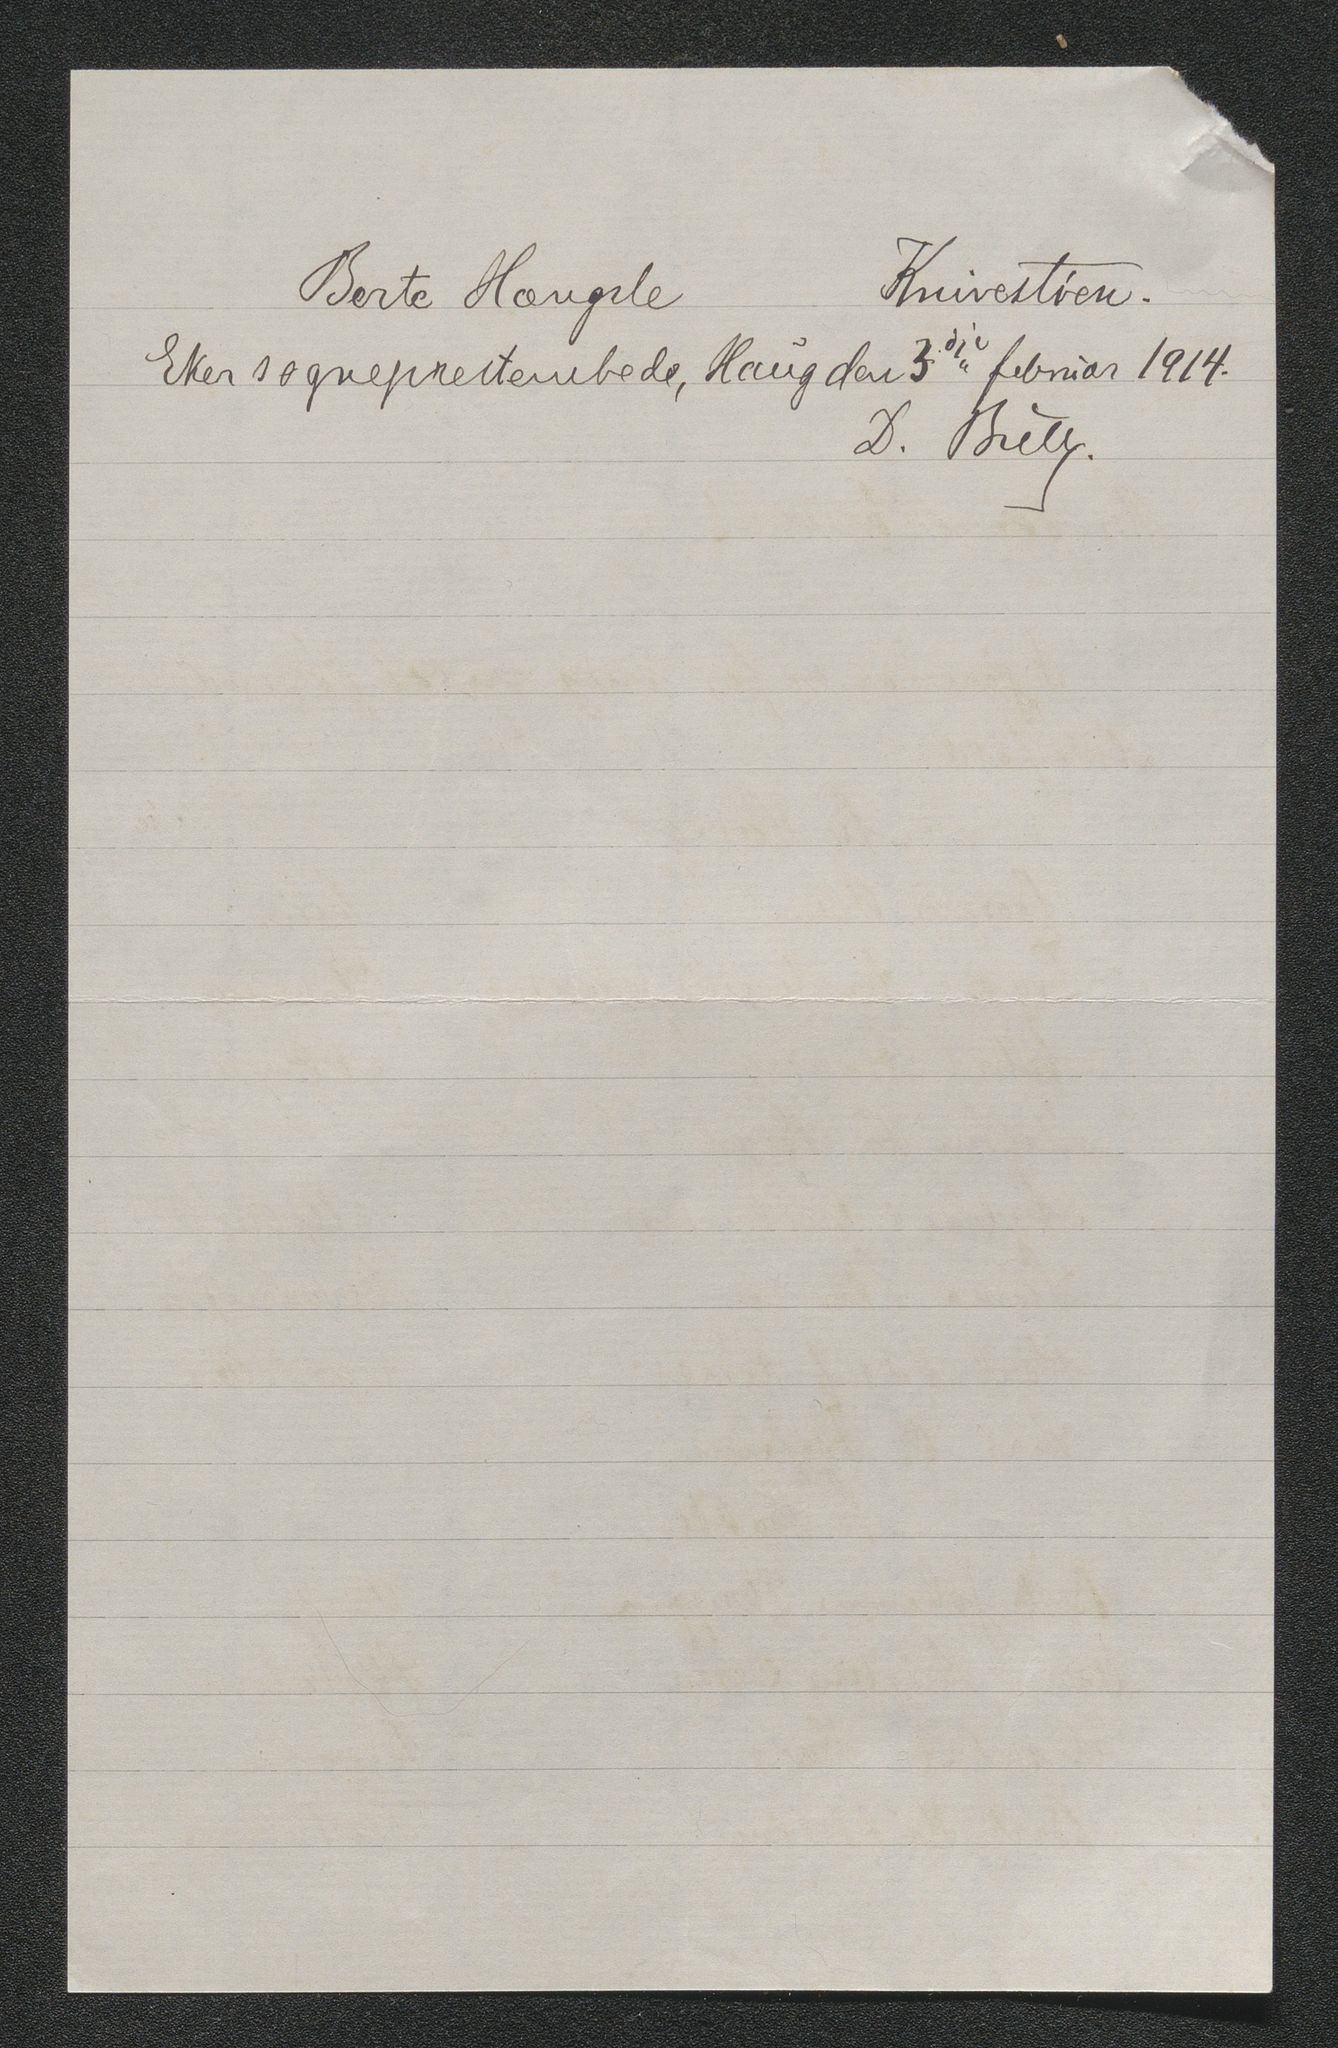 Berte Hængsle Knivestøen.
Eker sogneprestembede, Haug den 3die februar 1914.
D. Bully.